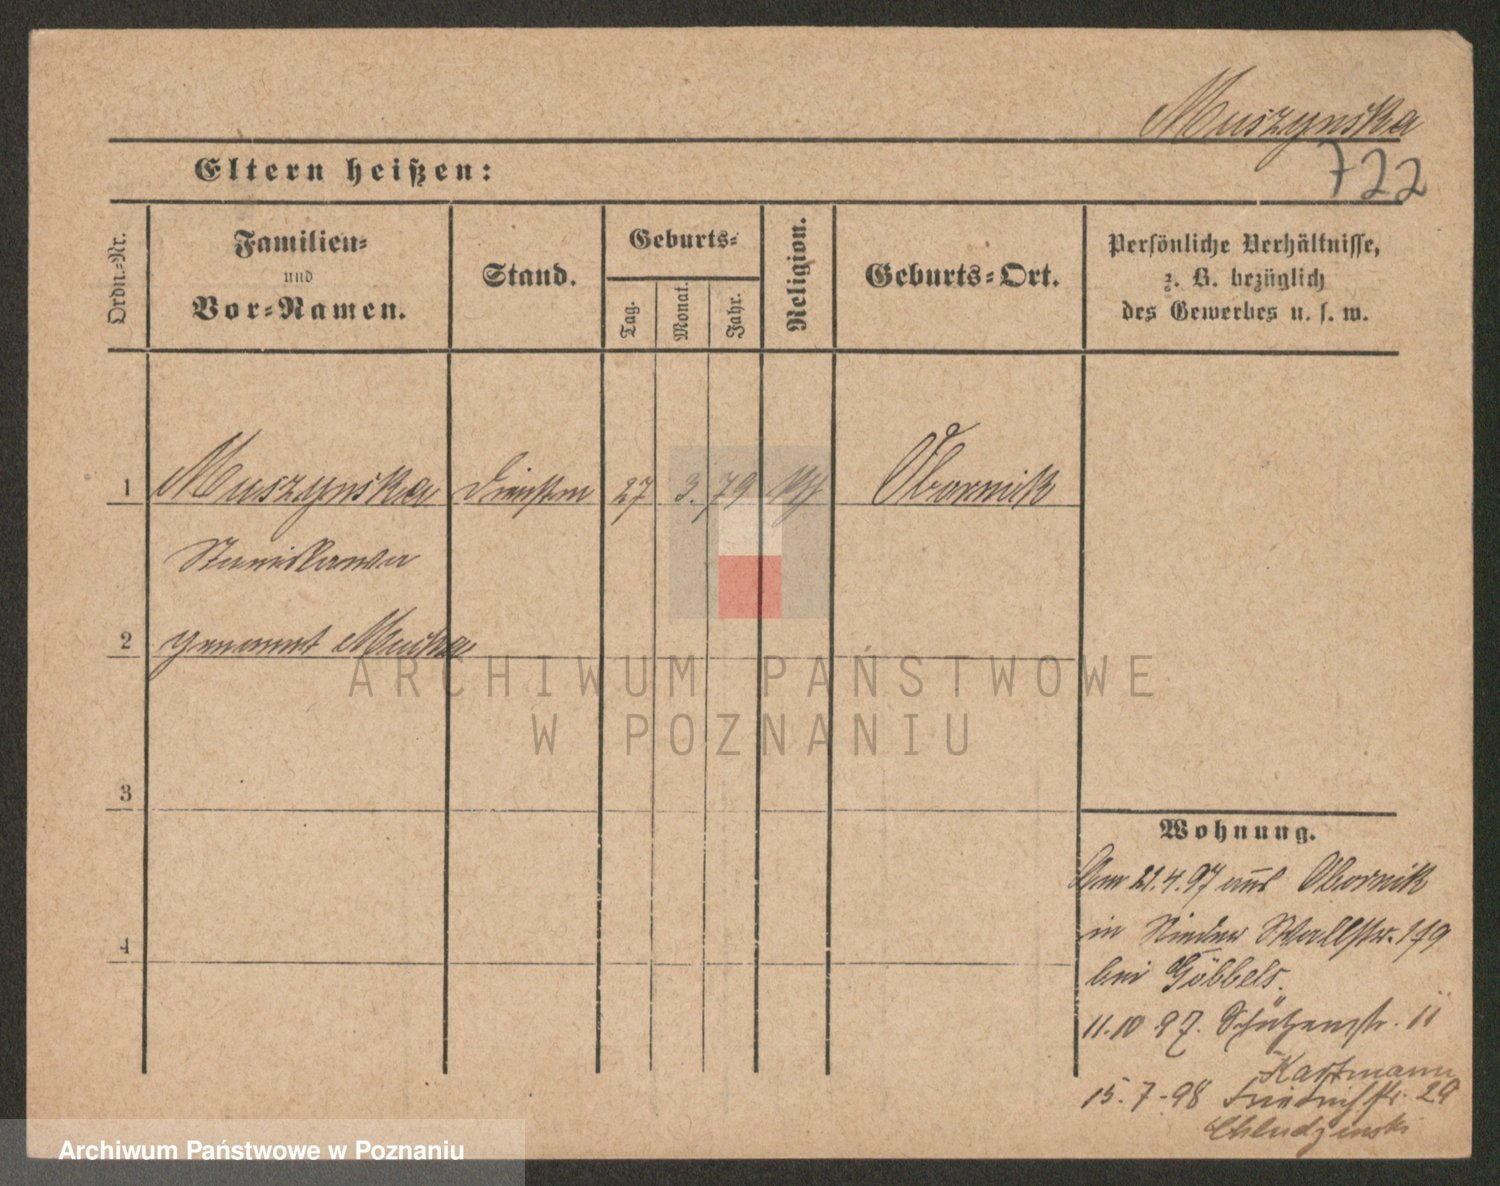 Muszynska
722
Eltern heißen:
Ordn.-Nr.
Familien-
und
Vor-Namen.
Stand.
Geburts-
Tag.
Monat.
Jahr.
Religion.
Geburts-Ort.
Persönliche Verhältnisse,
z. B. bezüglich
des Gewerbes u. s. w.
1 Muszynska 27 3. 79 Obornik
Stanislawa
2 genannt
3
4
Wohnung.
Am 21.4.97 aus Obornik
in Wallstr. 149
bei Göbbels.
11.10 97. Schützenstr. 11
Kastmann
15.7-98 Friedrichstr. 29
Chludzinski
ARCHIWUM PAŃSTWOWE
W POZNANIU
Archiwum Państwowe w Poznaniu